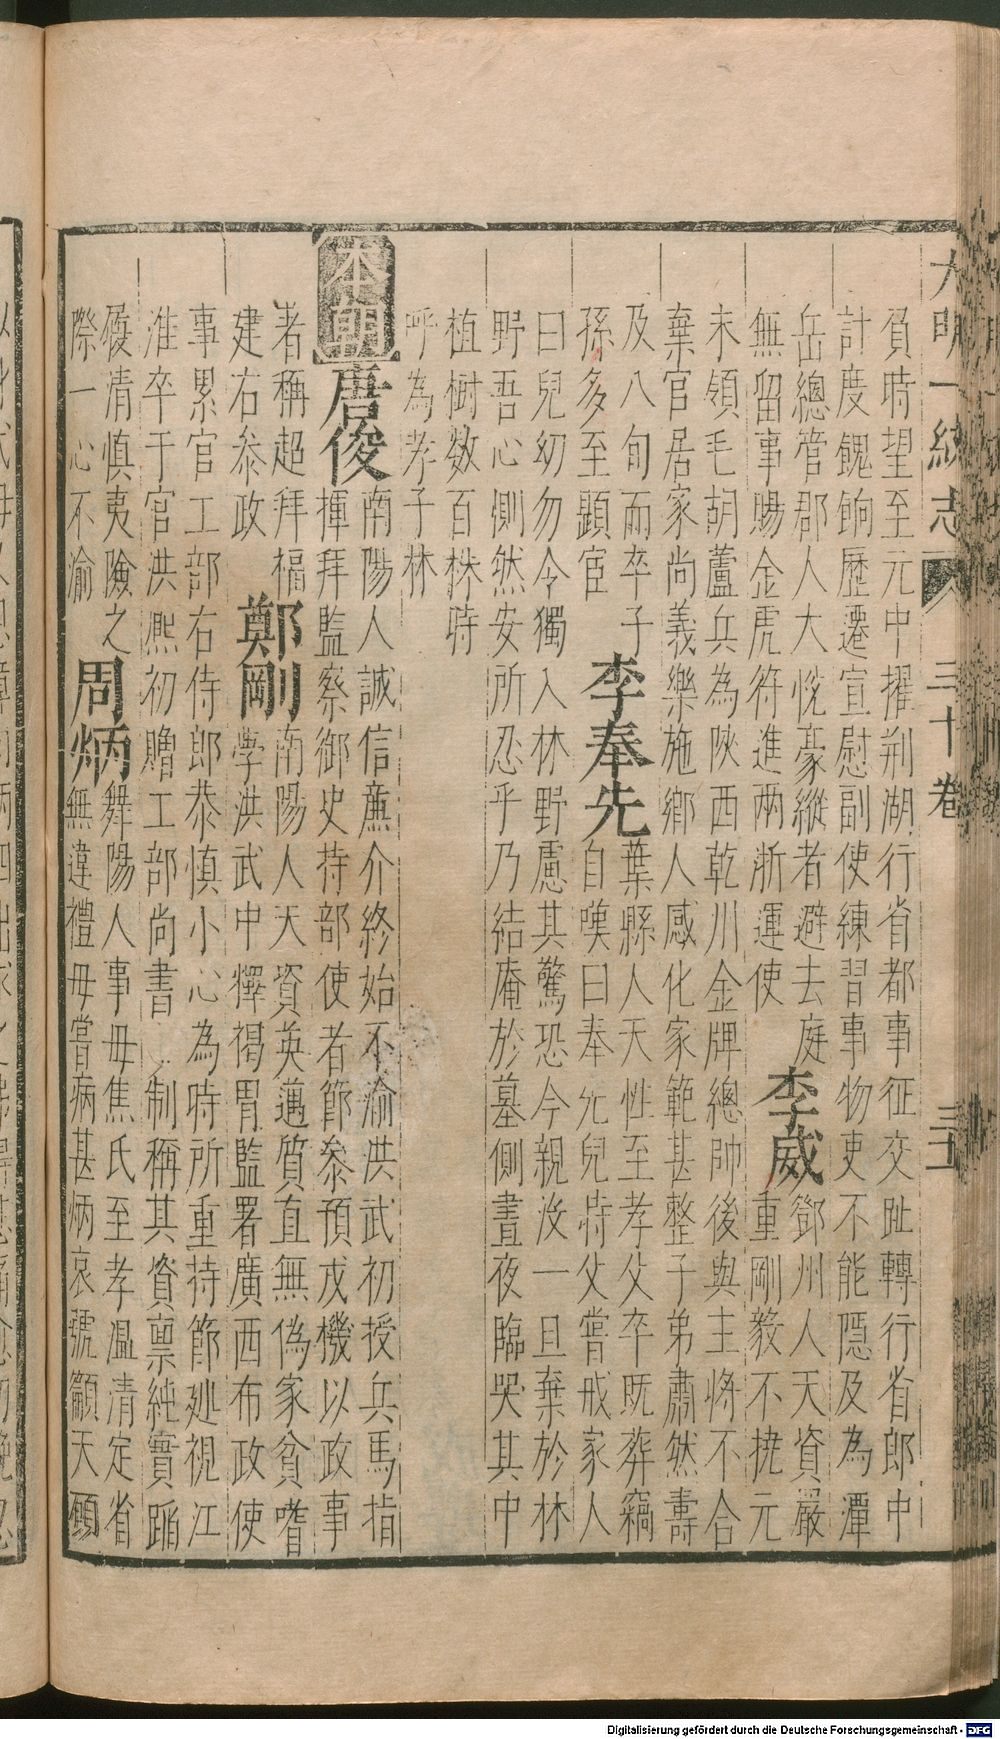 大明一統志 三十卷 三十一
負時望至元中擢荊湖行省都事征交趾轉行省郎中
計度餽餉歷遷宣慰副使練習事物吏不能隱及為潭
岳總管郡人大恱豪縱者避去庭
無留事賜金虎符進兩浙運使
李威
鄧州人天資嚴
重剛毅不撓元
末領毛胡蘆兵為陝西乾川金牌總帥後與主將不合
棄官居家尚義樂施鄉人感化家範甚整子弟肅然壽
及八旬而卒子
孫多至顯宦
李奉先
葉縣人天性至孝父卒既葬竊
自嘆曰奉先兒時父嘗戒家人
曰兒幼勿令獨入林野慮其驚恐今親沒一旦棄於林
野吾心惻然安所忍乎乃結庵於墓側晝夜臨哭其中
植樹數百株時
呼為孝子林
本朝
唐俊
南陽人誠信亷介終始不渝洪武初授兵馬指
揮拜監察御史持部使者節叅預戎機以政事
者稱超拜福
建右叅政
鄭剛
南陽人天資英邁質直無偽家貧嗜
學洪武中釋褐胃監署廣西布政使
事累官工部右侍郎恭慎小心為時所重持節廵視江
淮卒于官洪熈初贈工部尚書 制稱其資禀純實蹈
履清慎夷險之
際一心不渝
周炳
舞陽人事母焦氏至孝溫凊定省
無違禮母嘗病甚炳哀號籲天願
Digitalisierung gefördert durch die Deutsche Forschungsgemeinschaft - DFG